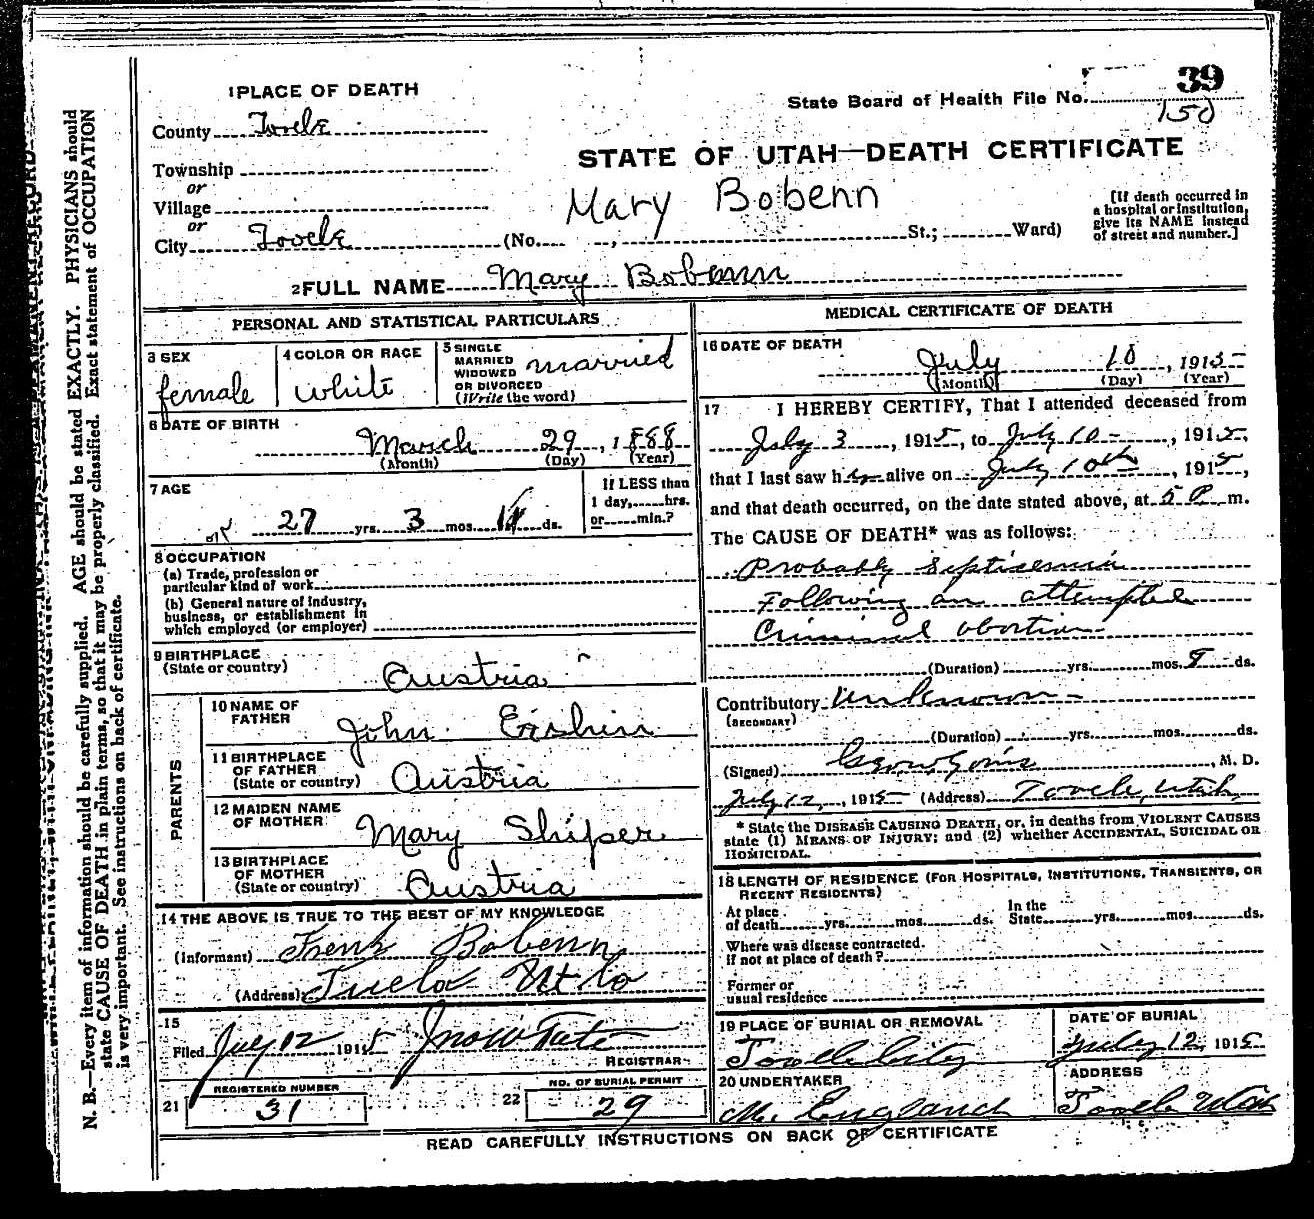 39
State Board of Health File No.
150
1 PLACE OF DEATH
County Tooele
STATE OF UTAH—DEATH CERTIFICATE
Township
or
Village
or
City Tooele (No. , St.; Ward)
Mary Bobenn
[If death occurred in a hospital or institution, give its NAME instead of street and number.]
2 FULL NAME Mary Bobenn
PERSONAL AND STATISTICAL PARTICULARS
3 SEX
female
4 COLOR OR RACE
White
5 SINGLE
MARRIED
WIDOWED
OR DIVORCED
(Write the word)
married
6 DATE OF BIRTH
March 29, 1888
(Month) (Day) (Year)
7 AGE
27 yrs. 3 mos. 11 ds.
If LESS than
1 day, hrs.
or min.?
8 OCCUPATION
(a) Trade, profession or
particular kind of work
(b) General nature of industry,
business, or establishment in
which employed (or employer)
9 BIRTHPLACE
(State or country)
Austria
PARENTS
10 NAME OF
FATHER
John
11 BIRTHPLACE
OF FATHER
(State or country)
Austria
12 MAIDEN NAME
OF MOTHER
Mary Shiper
13 BIRTHPLACE
OF MOTHER
(State or country)
Austria
14 THE ABOVE IS TRUE TO THE BEST OF MY KNOWLEDGE
(Informant) Frenk Bobenn
(Address)
15
Filed July 12 1915 Jno W Tate
REGISTRAR
21 REGISTERED NUMBER
31
22 NO. OF BURIAL PERMIT
29
MEDICAL CERTIFICATE OF DEATH
16 DATE OF DEATH
July 10, 1915
(Month) (Day) (Year)
17 I HEREBY CERTIFY, That I attended deceased from
July 3, 1915, to July 10, 1915,
that I last saw her alive on July 10th, 1915,
and that death occurred, on the date stated above, at 5 P. m.
The CAUSE OF DEATH* was as follows:
Probably Septicemia
Following an attempted
Criminal abortion
(Duration) yrs. mos. 8 ds.
Contributory Unknown
(SECONDARY)
(Duration) yrs. mos. ds.
(Signed) , M. D.
July 12, 1915 (Address) Tooele, Utah
* State the DISEASE CAUSING DEATH, or, in deaths from VIOLENT CAUSES
state (1) MEANS OF INJURY; and (2) whether ACCIDENTAL, SUICIDAL OR
HOMICIDAL.
18 LENGTH OF RESIDENCE (FOR HOSPITALS, INSTITUTIONS, TRANSIENTS, OR
RECENT RESIDENTS)
At place
of death yrs. mos. ds.
In the
State yrs. mos. ds.
Where was disease contracted.
if not at place of death?
Former or
usual residence
19 PLACE OF BURIAL OR REMOVAL
Tooele City
DATE OF BURIAL
July 12, 1915
20 UNDERTAKER
M. England
ADDRESS
Tooele Utah
READ CAREFULLY INSTRUCTIONS ON BACK OF CERTIFICATE
N. B.—Every item of information should be carefully supplied. AGE should be stated EXACTLY. PHYSICIANS should
state CAUSE OF DEATH in plain terms, so that it may be properly classified. Exact statement of OCCUPATION
is very important. See instructions on back of certificate.